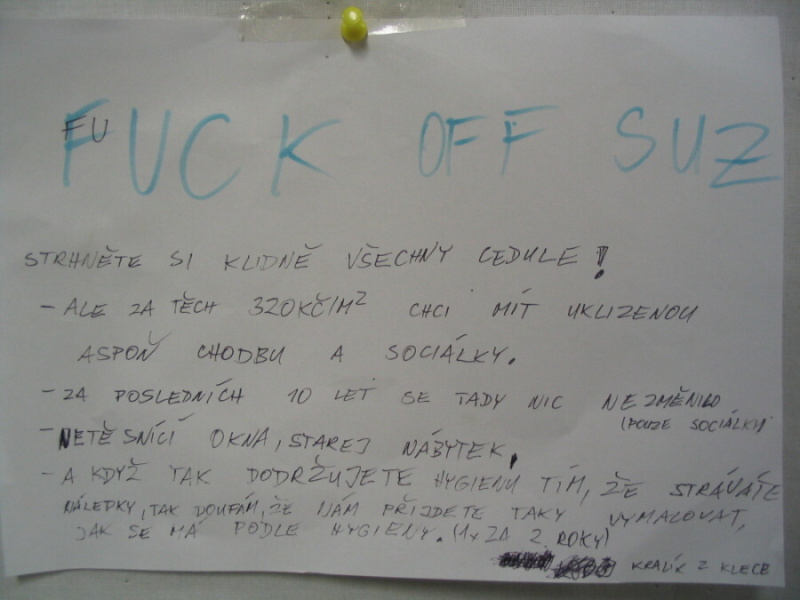 FUCK OFF SUZ
FU
STRHNĚTE SI KLIDNĚ VŠECHNY CEDULE!
- ALE ZA TĚCH 320KČ/M² CHCI MÍT UKLIZENOU
ASPOŇ CHODBU A SOCIÁLKY.
- ZA POSLEDNÍCH 10 LET SE TADY NIC NEZMĚNILO
(POUZE SOCIÁLKY)
- NETĚSNÍCÍ OKNA, STAREJ NÁBYTEK,
- A KDYŽ TAK DODRŽUJETE HYGIENU TÍM, ŽE STRÁVÁTE
NÁLEPKY, TAK DOUFÁM, ŽE NÁM PŘIJDETE TAKY VYMALOVAT,
JAK SE MÁ PODLE HYGIENY. (1x ZA 2 ROKY)
KRALÍK Z KLECE